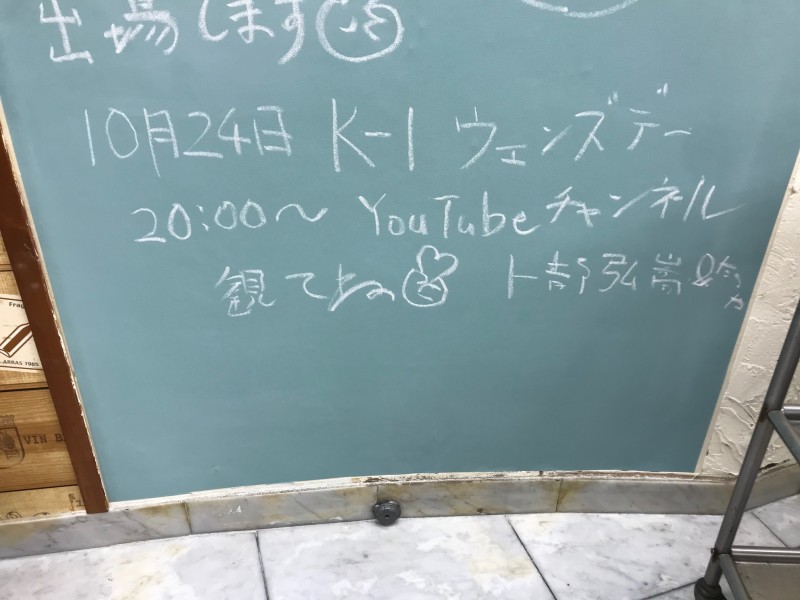 出場します
10月24日 K-1 ウェンズデー
20:00〜 YouTubeチャンネル
観てね 卜部弘嵩
VIN
ARRAS 1985